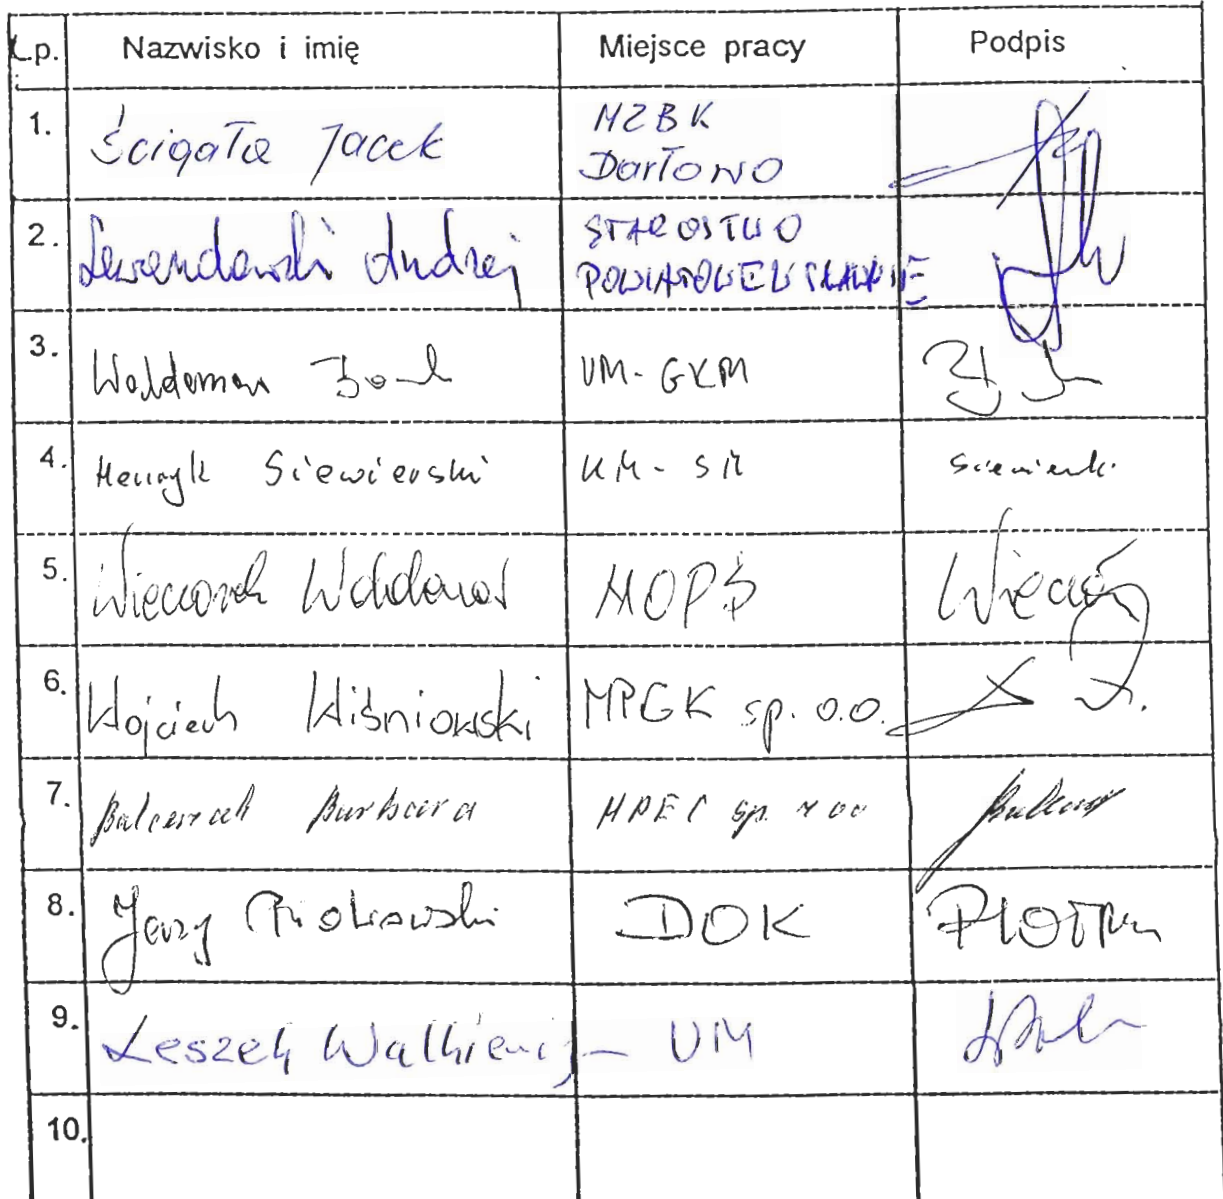 L.p. Nazwisko i imię Miejsce pracy Podpis
1. Ścigała Jacek MZBK Darłowo
2. Lewandowski Andrzej STAROSTWO POWIATOWE W SŁAWNIE
3. Waldemar UM-GKM
4. Henryk Siewierski UM-SM
5. Wieczorek Waldemar MOPS Wieczor
6. Wojciech Wiśniowski MPGK sp. o.o.
7. Balcerzak Barbara MPEC sp. z oo
8. Jerzy Piotrowski DOK
9. Leszek Walkiewicz - UM
10.